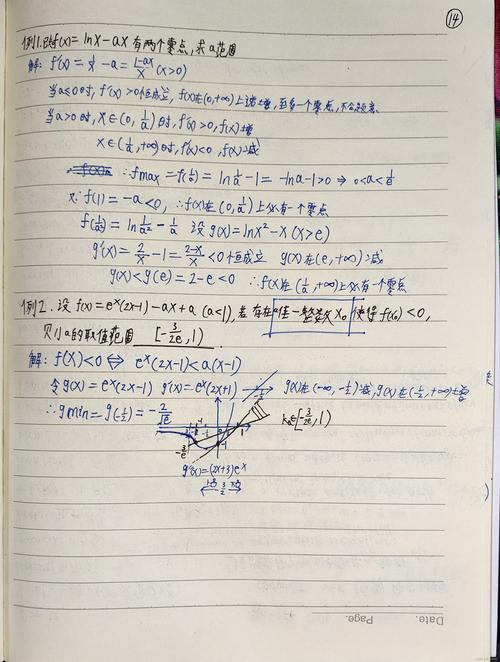 14
例1.已知f(x)=lnx-ax有两个零点,求a范围
解: f'(x)=1/x-a=(1-ax)/x (x>0)
当a≤0时, f'(x)>0恒成立, f(x)在(0,+∞)上递增,至多一个零点,不合题意.
当a>0时, x∈(0, 1/a)时, f'(x)>0, f(x)增
x∈(1/a,+∞)时, f'(x)<0, f(x)减
∴fmax=f(1/a)=ln1/a-1=-lna-1>0 ⇒ 0<a<1/e
又∵f(1)=-a<0, ∴f(x)在(0,1/a)上必有一个零点
f(1/a²)=ln1/a²-1/a 设g(x)=lnx²-x (x>e)
g'(x)=2/x-1=(2-x)/x<0恒成立 g(x)在(e,+∞)减
g(x)<g(e)=2-e<0 ∴f(x)在(1/a,+∞)上必有一个零点
例2. 设f(x)=eˣ(2x-1)-ax+a (a<1),若存在唯一整数x₀使得f(x₀)<0,
则a的取值范围 [-3/2e,1)
解: f(x)<0⇔eˣ(2x-1)<a(x-1)
令g(x)=eˣ(2x-1) g'(x)=eˣ(2x+1) -1/2 g(x)在(-∞,-1/2)减,g(x)在(-1/2,+∞)上增
∴gmin=g(-1/2)=-2/√e
k₀∈[-3/2e,1)
-1
1
-1
-3/e
g''(x)=(2x+3)eˣ
Date. Page.